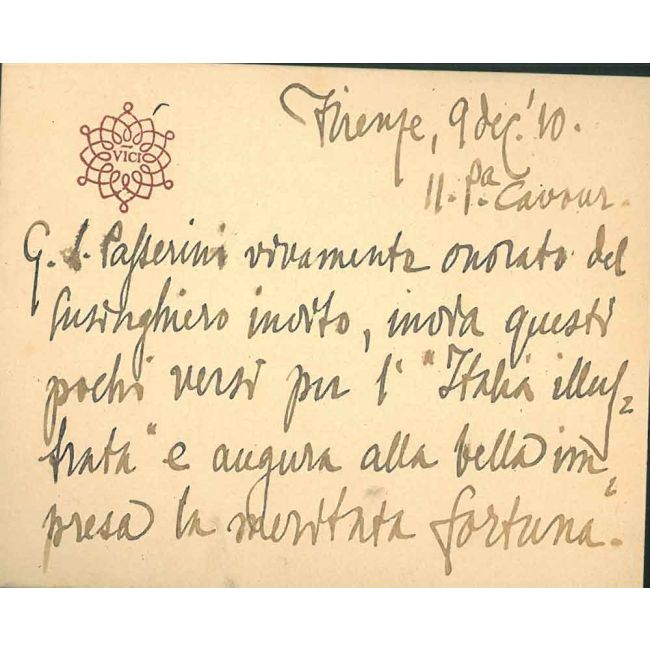 VICI
Firenze, 9 dec. '10.
11. P.a Cavour.
G. L. Passerini vivamente onorato del
lusinghiero invito, invia questi
pochi versi per l' "Italia illus=
trata" e augura alla bella im=
presa la meritata fortuna.